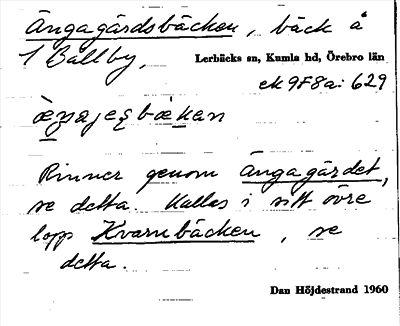 Ängagärdsbäcken, bäck å
1 Ballby,
Lerbäcks sn, Kumla hd, Örebro län
ek 9F8a: 629
Rinner genom Ängagärdet,
se detta. Kallas i sitt övre
lopp Kvarnbäcken, se
detta.
Dan Höjdestrand 1960